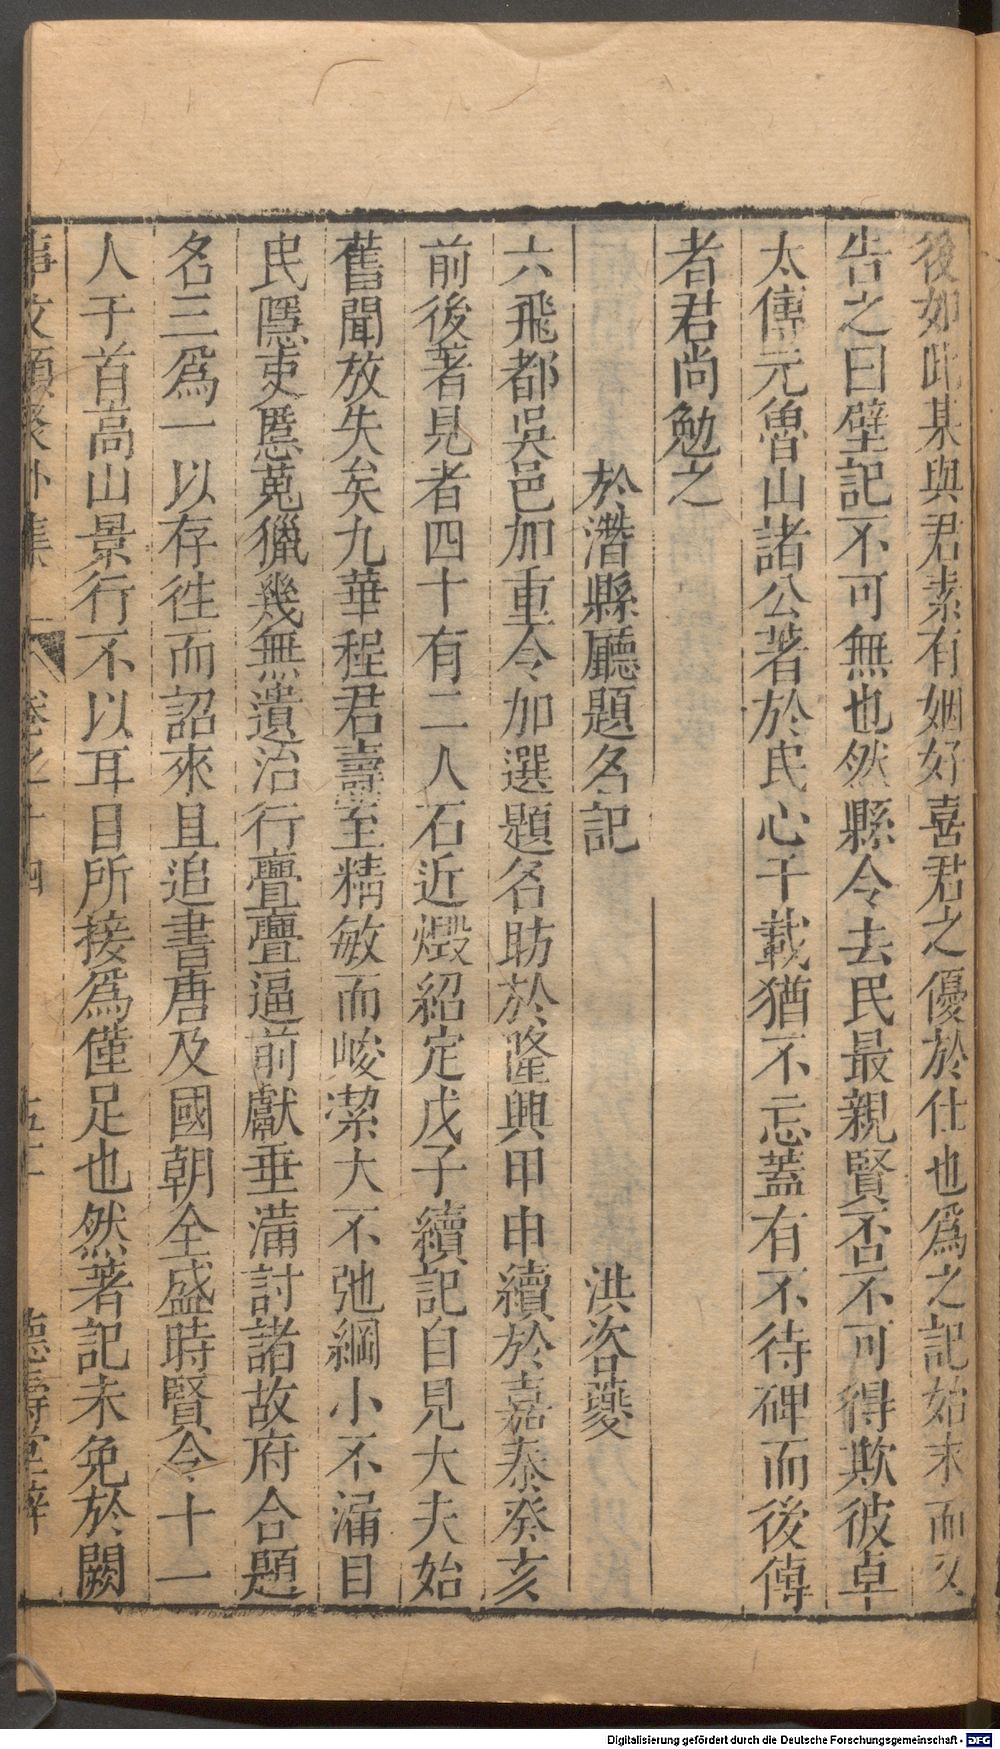 後如此某與君素有姻好喜君之優於仕也爲之記始末而又
告之曰壁記不可無也然縣令去民最親賢否不可得欺彼卓
太傅元魯山諸公著於民心千載猶不忘蓋有不待碑而後傳
者君尚勉之
於潛縣廳題名記　洪咨夔
六飛都吳邑加重令加選題名昉於隆興甲申續於嘉泰癸亥
前後著見者四十有二人石近燬紹定戊子續記自見大夫始
舊聞放失矣九華程君壽至精敏而峻潔大不弛綱小不漏目
民隱吏慝蒐獵幾無遺治行亹亹逼前獻垂滿討諸故府合題
名三爲一以存徃而詔來且追書唐及國朝全盛時賢令十一
人于首高山景行不以耳目所接爲僅足也然著記未免於闕
事文類聚外集　卷之十四　五十　德壽堂梓
Digitalisierung gefördert durch die Deutsche Forschungsgemeinschaft - DFG